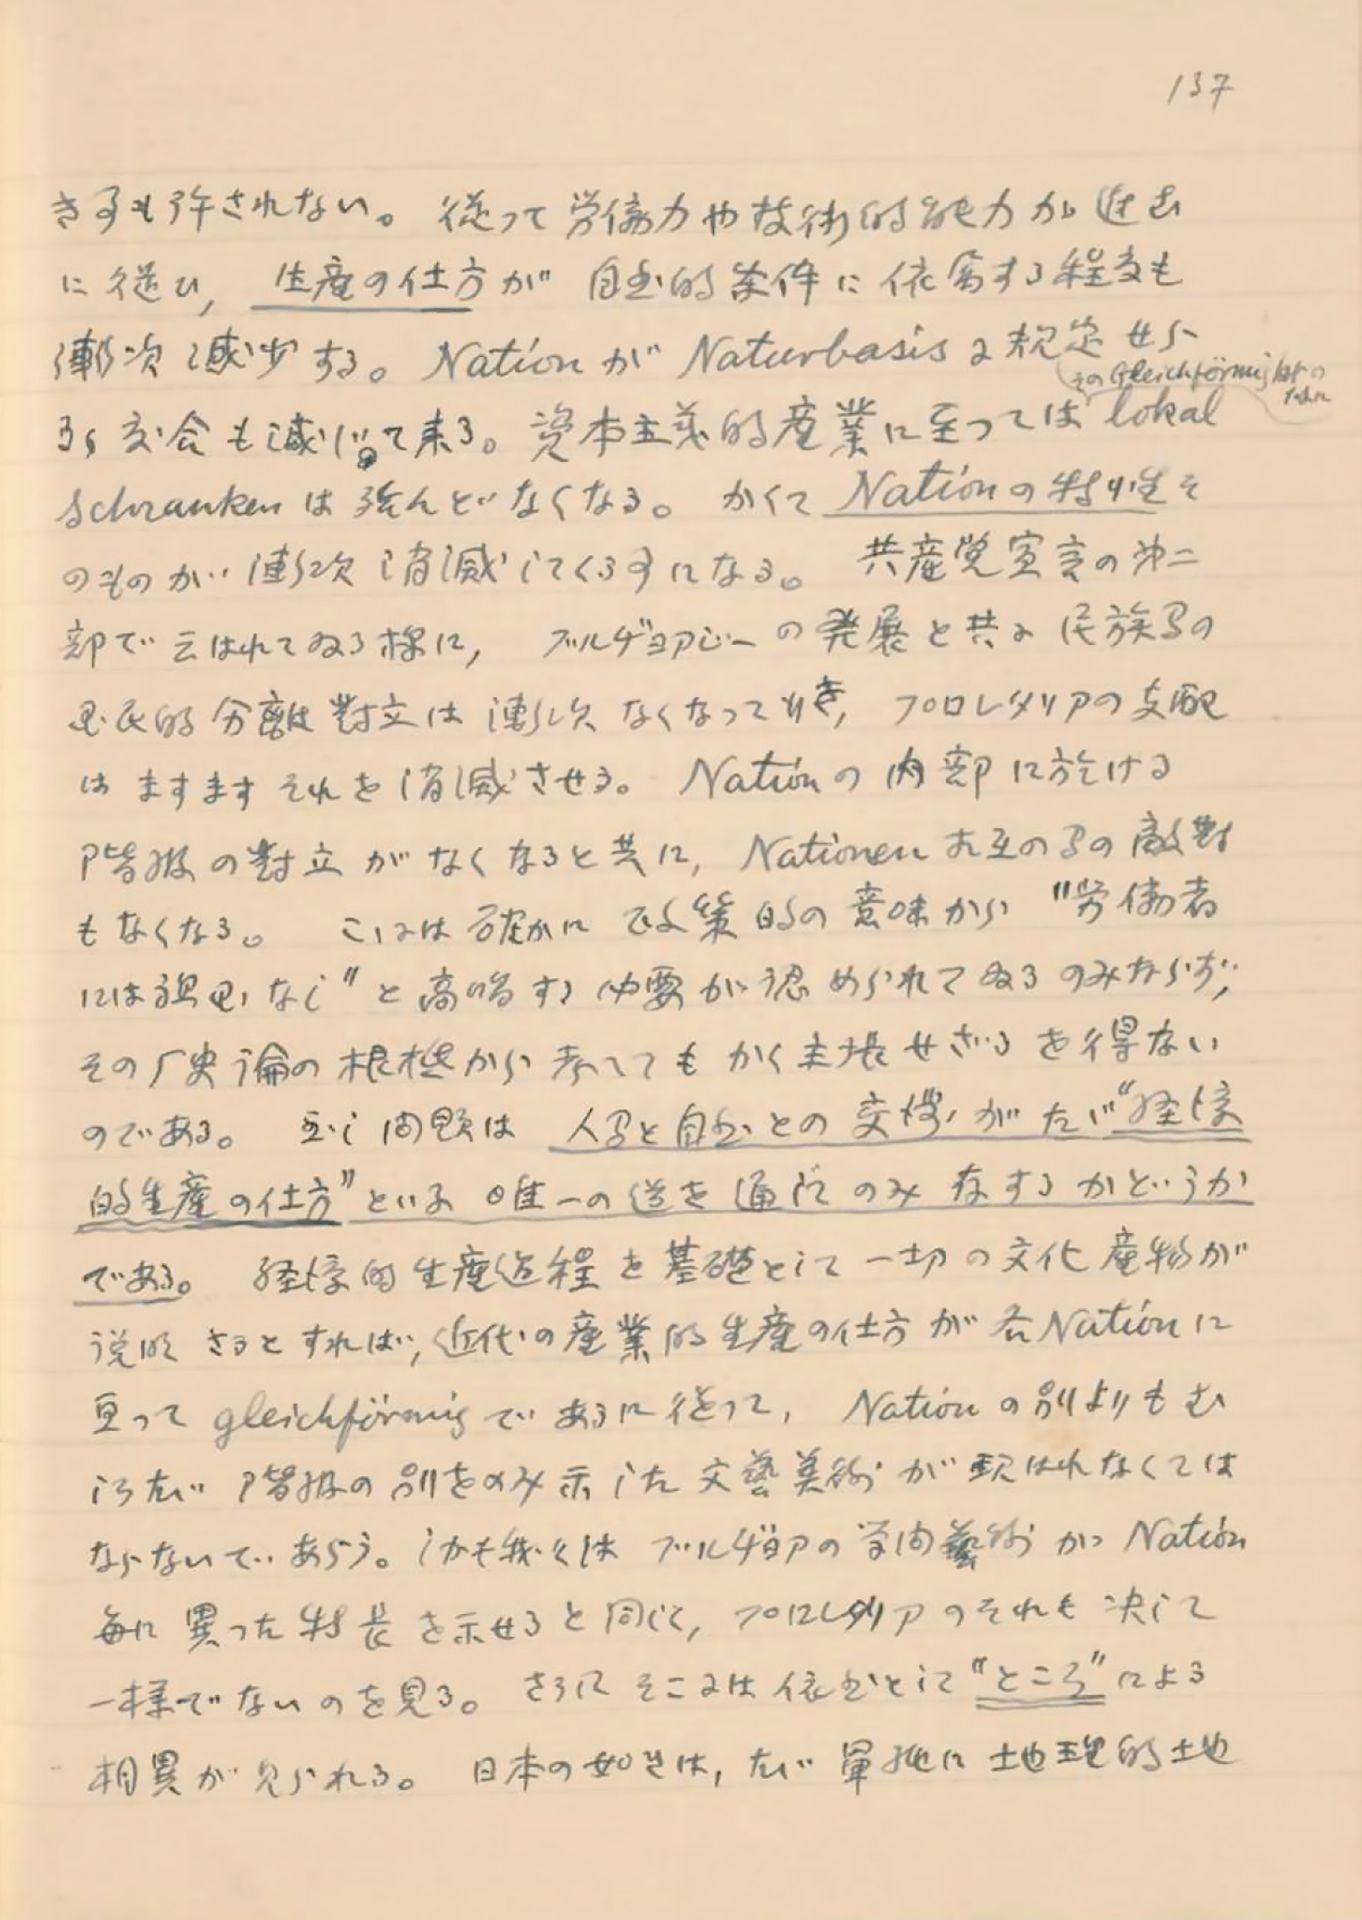 137
き事も許されない。従って労働力や技術的能力が進む
に従ひ, 生産の仕方が自然的条件に依属する程度も
漸次減少する。NationがNaturbasisに規定せら
そのGleichförmigkeitの
るゝ度合も減じて来る。資本主義的産業に至ってはlokal
Schrankenは殆んどなくなる。かくてNationの特性そ
のものが漸次消滅してくる事になる。共産党宣言の第二
部で云はれてゐる様に, ブルヂョアジーの発展と共に民族間の
国民的分離対立は漸次なくなってゆき, プロレタリアの支配
はますますそれを消滅させる。Nationの内部に於ける
階級の対立がなくなると共に, Nationenお互の間の敵対
もなくなる。こゝには確かに政策的の意味から"労働者
には祖国なし"と高唱する必要が認められてゐるのみならず,
その歴史論の根柢から考へてもかく主張せざるを得ない
のである。致し問題は人間と自然との交渉がたゞ"経済
的生産の仕方"といふ唯一の道を通じてのみ存するかどうか
である。経済的生産過程を基礎として一切の文化産物が
説明さるとすれば, 近代の産業的生産の仕方が各Nationに
亙ってgleichförmigであるに従って, Nationの別よりもむ
しろたゞ階級の別をのみ示した文藝美術が現はれなくては
ならないであらう。しかも我々はブルヂョアの学問藝術がNation
毎に異った特長を示せると同じく, プロレタリアのそれも決して
一様でないのを見る。さうしてそこには依然として"ところ"による
相異が見られる。日本の如きは, たゞ単純に地理的土地